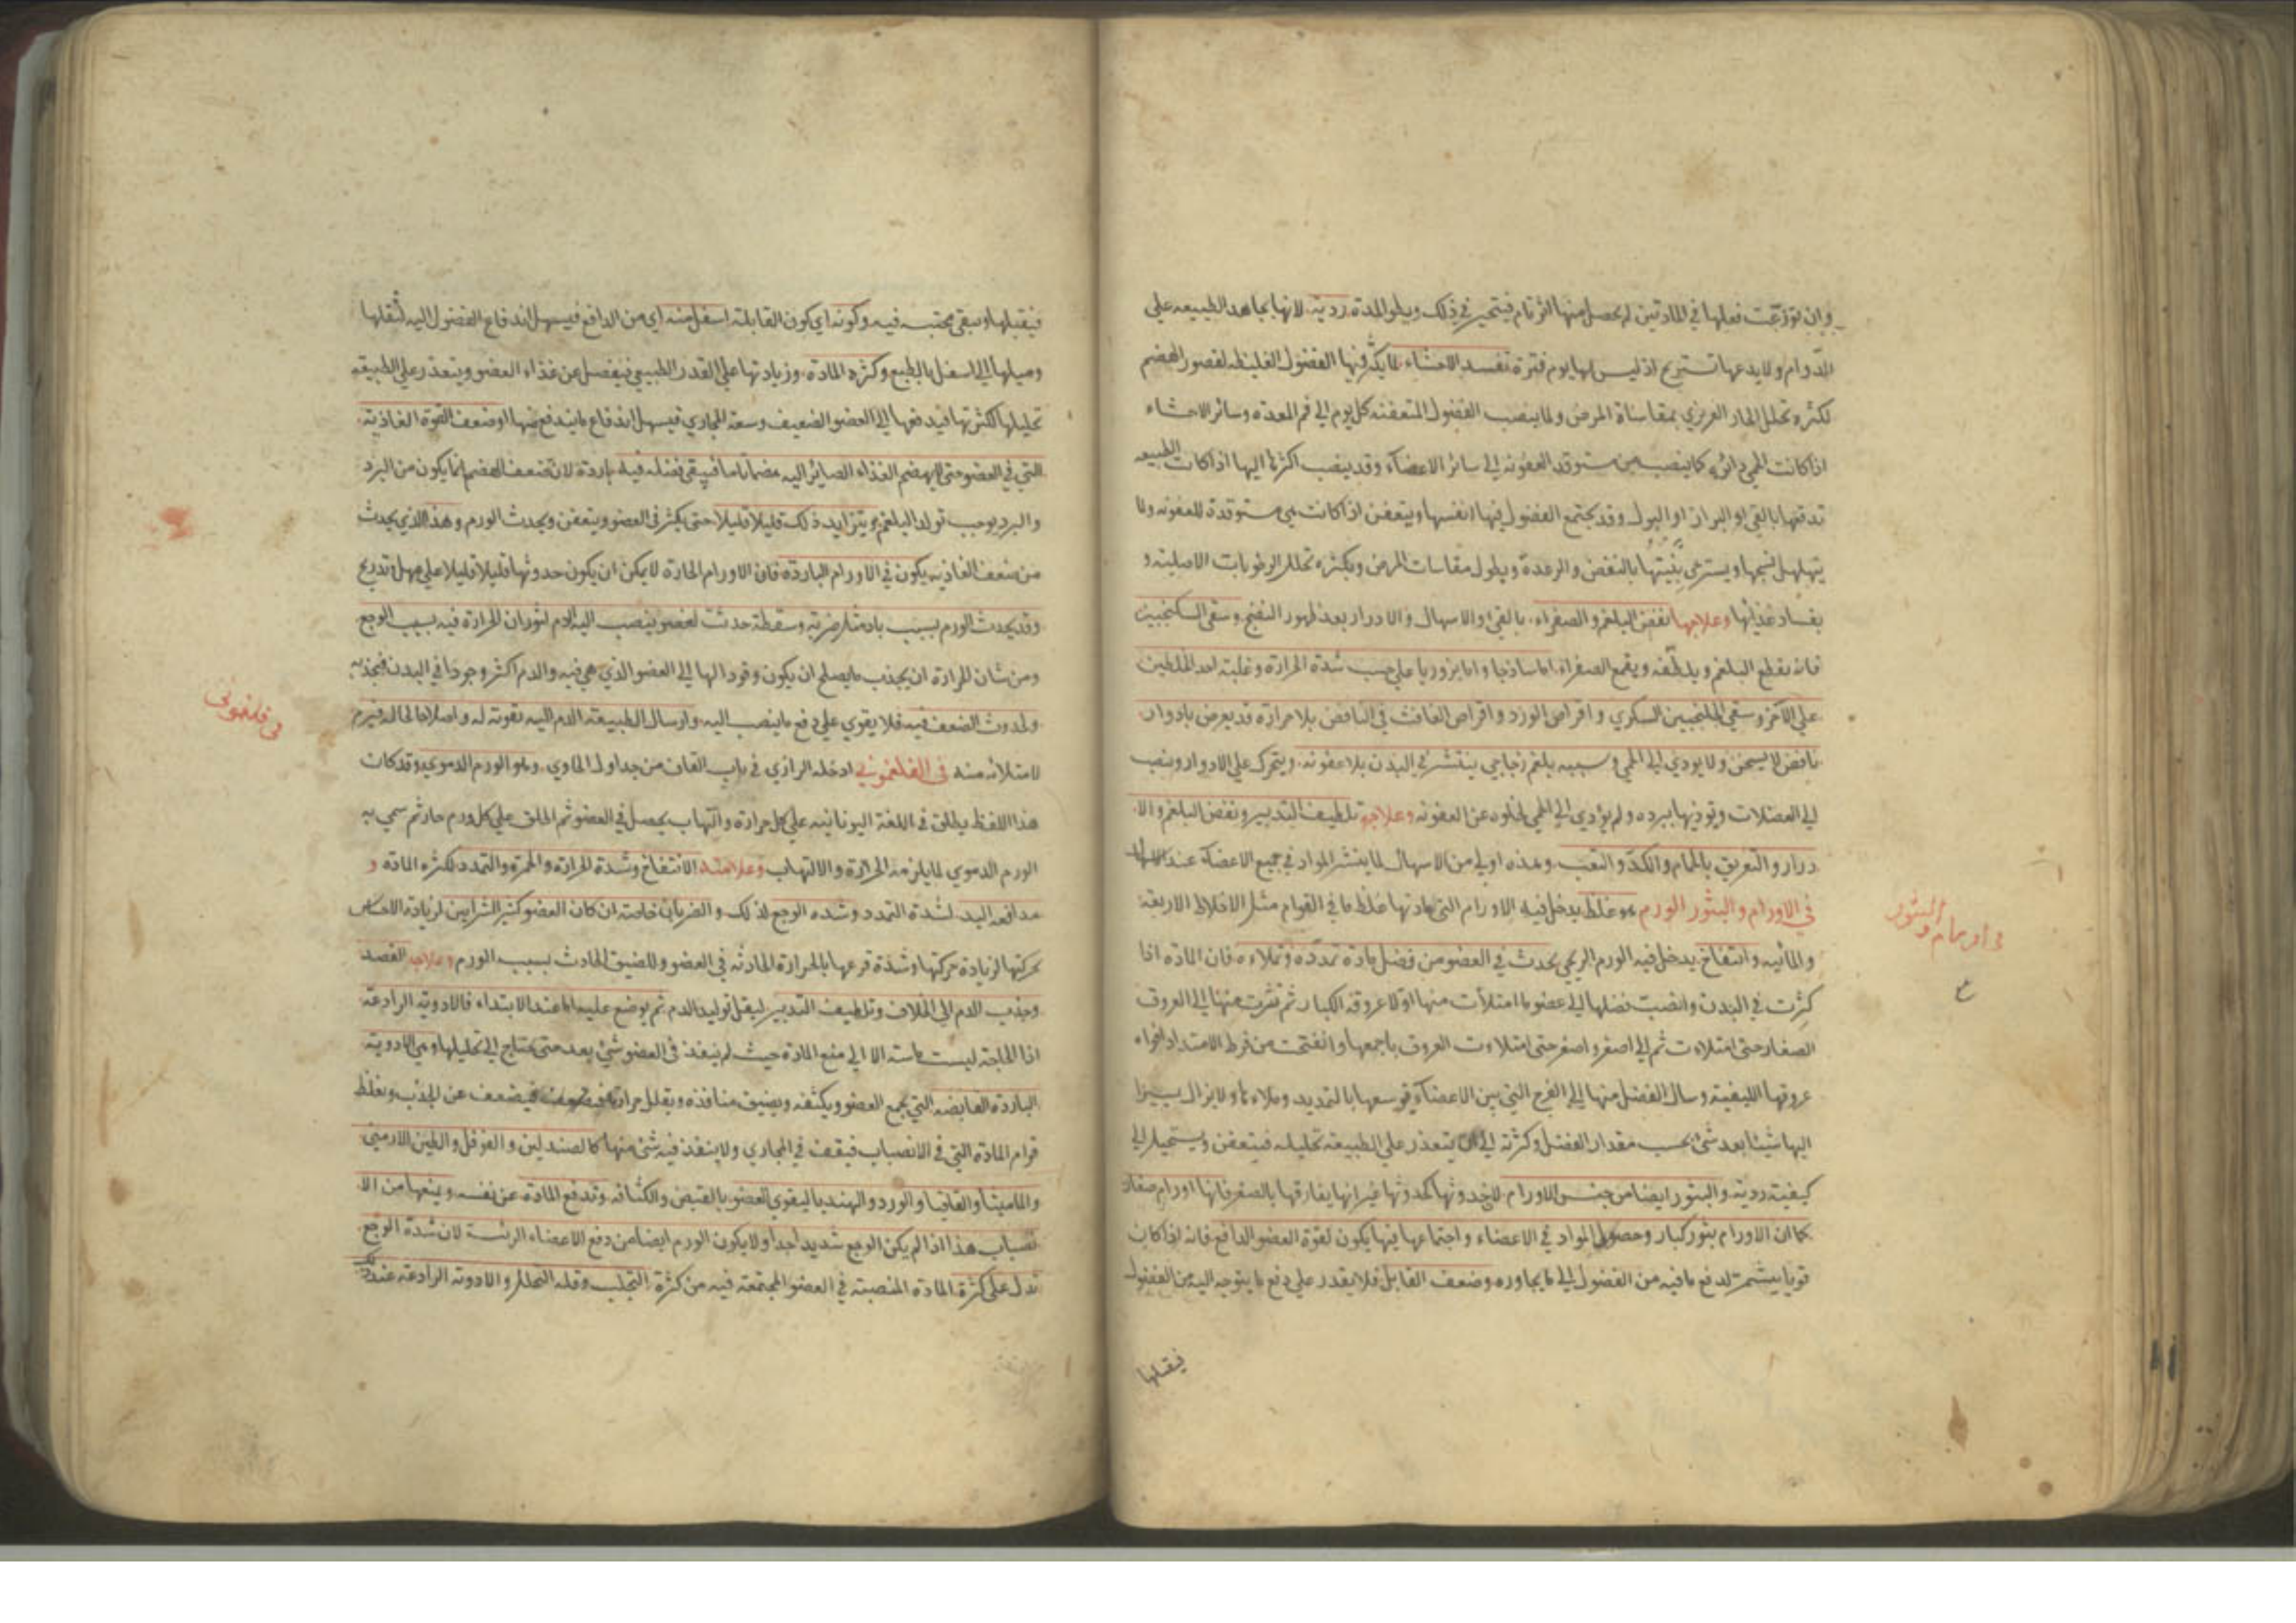 وان توزعت فعلها في المادتين لم يحصل منها اثر تام فيتحير في ذلك ويطول المدة ردية لانها يجاهد الطبيعه على
الدوام ولا يدعها تستريح اذ ليس لها يوم فترة تفسد الاحشاء لما يكثر فيها الفضول الغليظه لقصور الهضم
لكثره تحلل الحار الغريزي بمقاساة المرض ولما ينصب الفضول المتعفنه كل يوم الى فم المعده وسائر الاحشاء
اذا كانت الحمي دائره كما ينصب من مستوقد العفونه الى سائر الاعضاء وقد ينصب اكثرها اليها اذا كانت الطبيعه
تدفعها بالقي او البراز او البول وقد يجتمع الفضول فيها انفسها ويتعفن اذا كانت هي مستوقدة للعفونه ولما
يتهلهل نسجها ويسترخي بنيتها بالنفض والرعدة ويطول مقاسات المرض وبكثره تحلل الرطوبات الاصلية و
بفساد غذائها وعلاجها نفض البلغم والصفراء بالقي والاسهال والادرار بعد ظهور النضج وسقي السكنجبين
فانه يقطع البلغم ويلطفه ويقمع الصفراء اما ساذجا واما بزوريا علي حسب شدة الحرارة وغلبة احد الخلطين
علي الآخر وسقي الجلنجبين السكري واقراص الورد واقراص الغافث في النافض بلا حرارة قد يعرض بادوار
نافض لا يسخن ولا يودي الي الحمي وسببه بلغم زجاجي ينتشر في البدن بلا عفونه ويتحرك علي الادوار وينصب
الي العضلات ويؤذيها ببرده ولم يؤدي الي الحمي لخلوه عن العفونه وعلاجه تلطيف التدبير ونفض البلغم والا
درار والتعريق بالحمام والكد والتعب وهذه اولي من الاسهال لما ينتشر المواد في جميع الاعضاء عند الاسهال
في الاورام والبثور الورم هو غلظ يدخل فيه الاورام التي مادتها غلظ ما في القوام مثل الاخلاط الاربعة
والمائيه وانتفاخ يدخل فيه الورم الريحي يحدث في العضو من فضل مادة تمدده وتملاءه فان المادة اذا
كثرت في البدن وانصبت فضلها الي عضو ما امتلأت منها اولا عروقه الكبار ثم نشرت منها الي العروق
الصغار حتى امتلاءت ثم الي اصغر واصغر حتى امتلاءت العروق باجمعها وانفتحت من فرط الامتداد افواه
عروقها الليفية وسال الفضل منها الي الفرج التي بين الاعضاء فيوسعها بالتمديد وملاءها ولا يزال يسيرا
اليها شيئا بعد شئ بحسب مقدار الفضل وكثرته الي ان يتعذر علي الطبيعه تحليله فيتعفن ويستحيل الي
كيفية ردية والبثور ايضا من جنس الاورام لان حدوثها كحدوثها غير انها يفارقها بالصغر فانها اورام صغار
كما ان الاورام بثور كبار وحصول المواد في الاعضاء واجتماعها فيها يكون لقوة العضو الدافع فانه اذا كان
قويا يشمر لدفع ما فيه من الفضول الي ما يجاوره وضعف القابل فلا يقدر علي دفع ما يتوجه اليه من الفضول
فيقبلها
في اورام والبثور
فيقبلها ويبقى محتبسه فيه وكونه اي كون القابلة اسفل منه اي من الدافع فيسهل اندفاع الفضول اليه لثقلها
وميلها الي اسفل بالطبع وكثره المادة وزيادتها علي القدر الطبيعي فيفضل عن غذاء العضو ويتعذر علي الطبيعه
تحليلها لكثرتها فيدفعها الي العضو الضعيف وسعة المجاري فيسهل اندفاع ما يندفع منها او ضعف القوة الغاذية
التي في العضو حتى لا يهضم الغذاء الصائر اليه هضما تاما فيبقى فضله فيه باردة لان ضعف الهضم انما يكون من البرد
والبرد يوجب تولد البلغم ويتزايد ذلك قليلا قليلا حتى يكثر في العضو ويتعفن ويحدث الورم وهذا الذي يحدث
من ضعف الغاذيه يكون في الاورام الباردة فان الاورام الحارة لا يمكن ان يكون حدوثها قليلا قليلا علي مهل وتدريج
وقد يحدث الورم بسبب باد مثل ضربة وسقطة حدثت لعضو ينصب اليه الدم لثوران الحرارة فيه بسبب الوجع
ومن شان الحرارة ان يجذب ما يصلح ان يكون وقودا لها الي العضو الذي هي فيه والدم اكثر وجودا في البدن فيجذبه
ولحدوث الضعف فيه فلا يقوي علي دفع ما ينصب اليه وارسال الطبيعة الدم اليه تقوية له واصلاحا لحاله فيرم
لامتلائه منه في الفلغموني ادخله الرازي في باب القاف من جداول الحاوي وهو الورم الدموي وقد كان
هذا اللفظ يطلق في اللغة اليونانيه علي كل حرارة والتهاب يحصل في العضو ثم اطلق علي كل ورم حار ثم سمي به
الورم الدموي لما يلزمه الحرارة والالتهاب وعلامته الانتفاخ وشدة الحرارة والحمرة والتمدد لكثره المادة و
مدافعه اليد لشدة التمدد وشده الوجع لذلك والضربان خاصة ان كان العضو كثير الشرايين لزيادة الاحساس
بحركتها لزيادة حركتها وشدة قرعها بالحرارة الحادثه في العضو وللضيق الحادث بسبب الورم وعلاجه الفصد
وجذب الدم الي الخلاف وتلطيف التدبير ليقل توليد الدم ثم يوضع عليه اما عند الابتداء فالادوية الرادعة
اذا الحاجة ليست ماسة الا الي منع المادة حيث لم ينفذ في العضو شئ بعد حتى يحتاج الي تحليلها وهي الادوية
الباردة القابضه التي يجمع العضو ويكثفه ويضيق منافذه ويقلل حرارته فيضعف عن الجذب ويغلظ
قوام المادة التي في الانصباب فيقف في المجاري ولا ينفذ فيه شئ منها كالصندلين والفوفل والطين الارمني
والماميثا والقاقيا والورد والهندبا ليقوي العضو بالقبض والكثافه وتدفع المادة عن نفسه ويمنعها من الا
نصباب هذا اذا لم يكن الوجع شديدا جدا ولا يكون الورم ايضا من دفع الاعضاء الرئسة لان شدة الوجع
تدل على كثرة المادة المنصبة في العضو المجتمعة فيه من كثرة التجلب وقله التحلل والادوية الرادعة عند ذلك
في فلغموني